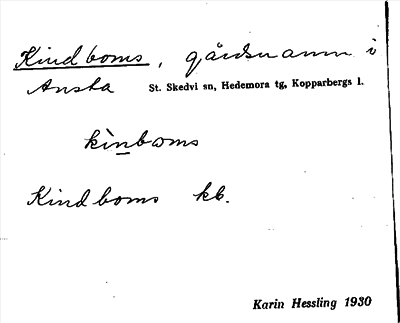 Kindboms, gårdsnamn i
Ansta St. Skedvi sn, Hedemora tg, Kopparbergs l.
kìnbωms
Kindboms kb.
Karin Hessling 1930